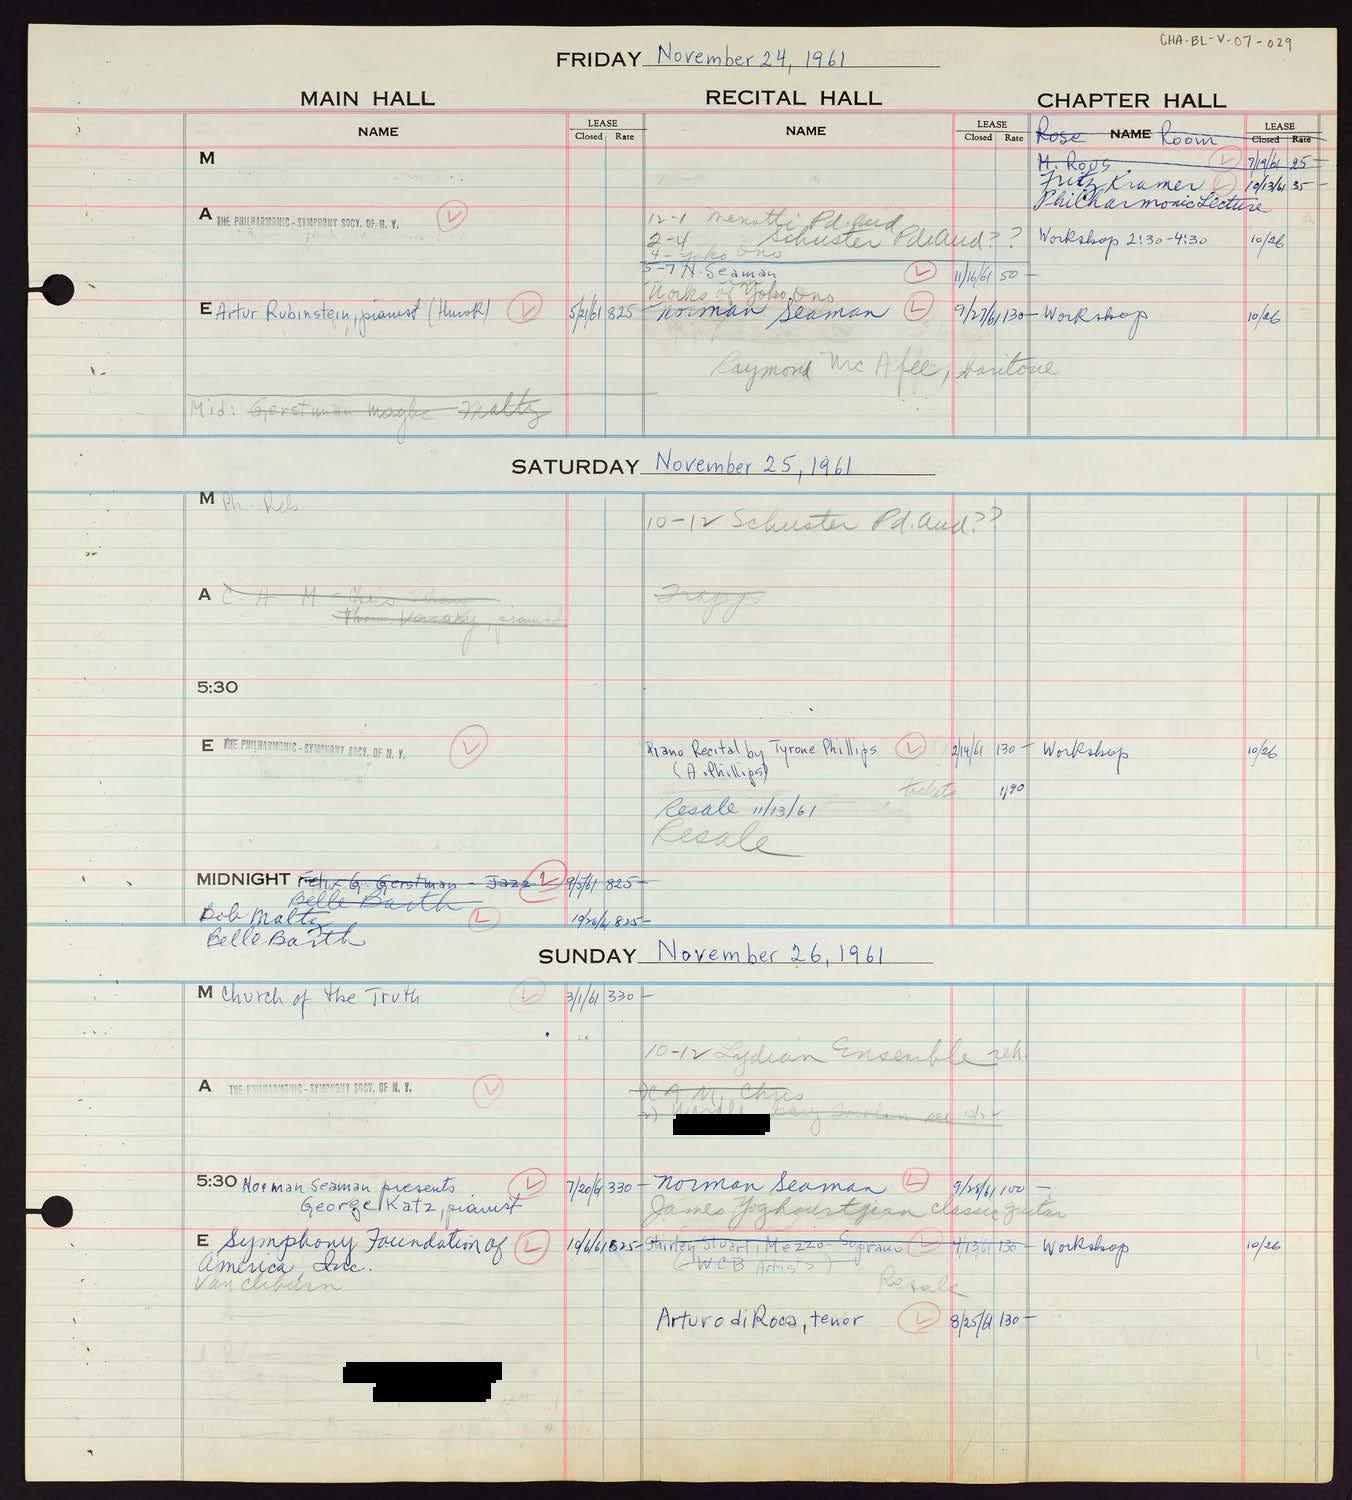 CHA-BL-V-07-029
FRIDAY November 24, 1961
MAIN HALL
RECITAL HALL
CHAPTER HALL
NAME
LEASE
Closed Rate
NAME
LEASE
Closed Rate
Rose NAME Room
LEASE
Closed Rate
M
M. Rous 7/19/61 25-
Fritz Kramer 10/13/61 35-
Philharmonic Lecture
A THE PHILHARMONIC-SYMPHONY SOCY. OF N. Y.
12-1 Menotti Pd. Aud
2-4 Schuster Pd. Aud??
Workshop 2:30-4:30 10/26
4- Yoko Ono
5-7 N. Seaman 11/16/61 50-
Works of Yoko Ono
E Artur Rubinstein, pianist (Hurok) 5/21/61 825-
Norman Seaman 9/27/61 130-
Workshop 10/26
Raymond McAfee, baritone
Mid: Gerstman maybe Maltz
SATURDAY November 25, 1961
M Ph. Reh
10-12 Schuster Pd. Aud??
A C H M - Chris
Trapps
5:30
E THE PHILHARMONIC-SYMPHONY SOCY. OF N. Y.
Piano Recital by Tyrone Phillips 2/14/61 130-
Workshop 10/26
(A. Phillips)
tickets 1,90
Resale 11/13/61
Resale
MIDNIGHT Felix G. Gerstman - Jazz 9/5/61 825-
Belle Barth
Bob Maltz 10/26/61 825-
Belle Barth
SUNDAY November 26, 1961
M Church of the Truth 3/1/61 330-
10-12 Lydian Ensemble reh.
A THE PHILHARMONIC-SYMPHONY SOCY. OF N. Y.
C A M. Chris
5:30 Norman Seaman presents 7/20/61 330-
George Katz, pianist
Norman Seaman 9/28/61 100-
James Yoghourtjian classic guitar
E Symphony Foundation of 10/6/61 825-
America, Inc.
Van Cliburn
Shirley Stuart, Mezzo-Soprano 4/13/61 130-
(WCB Artists)
Workshop 10/26
Resale
Arturo di Roca, tenor 8/25/61 130-